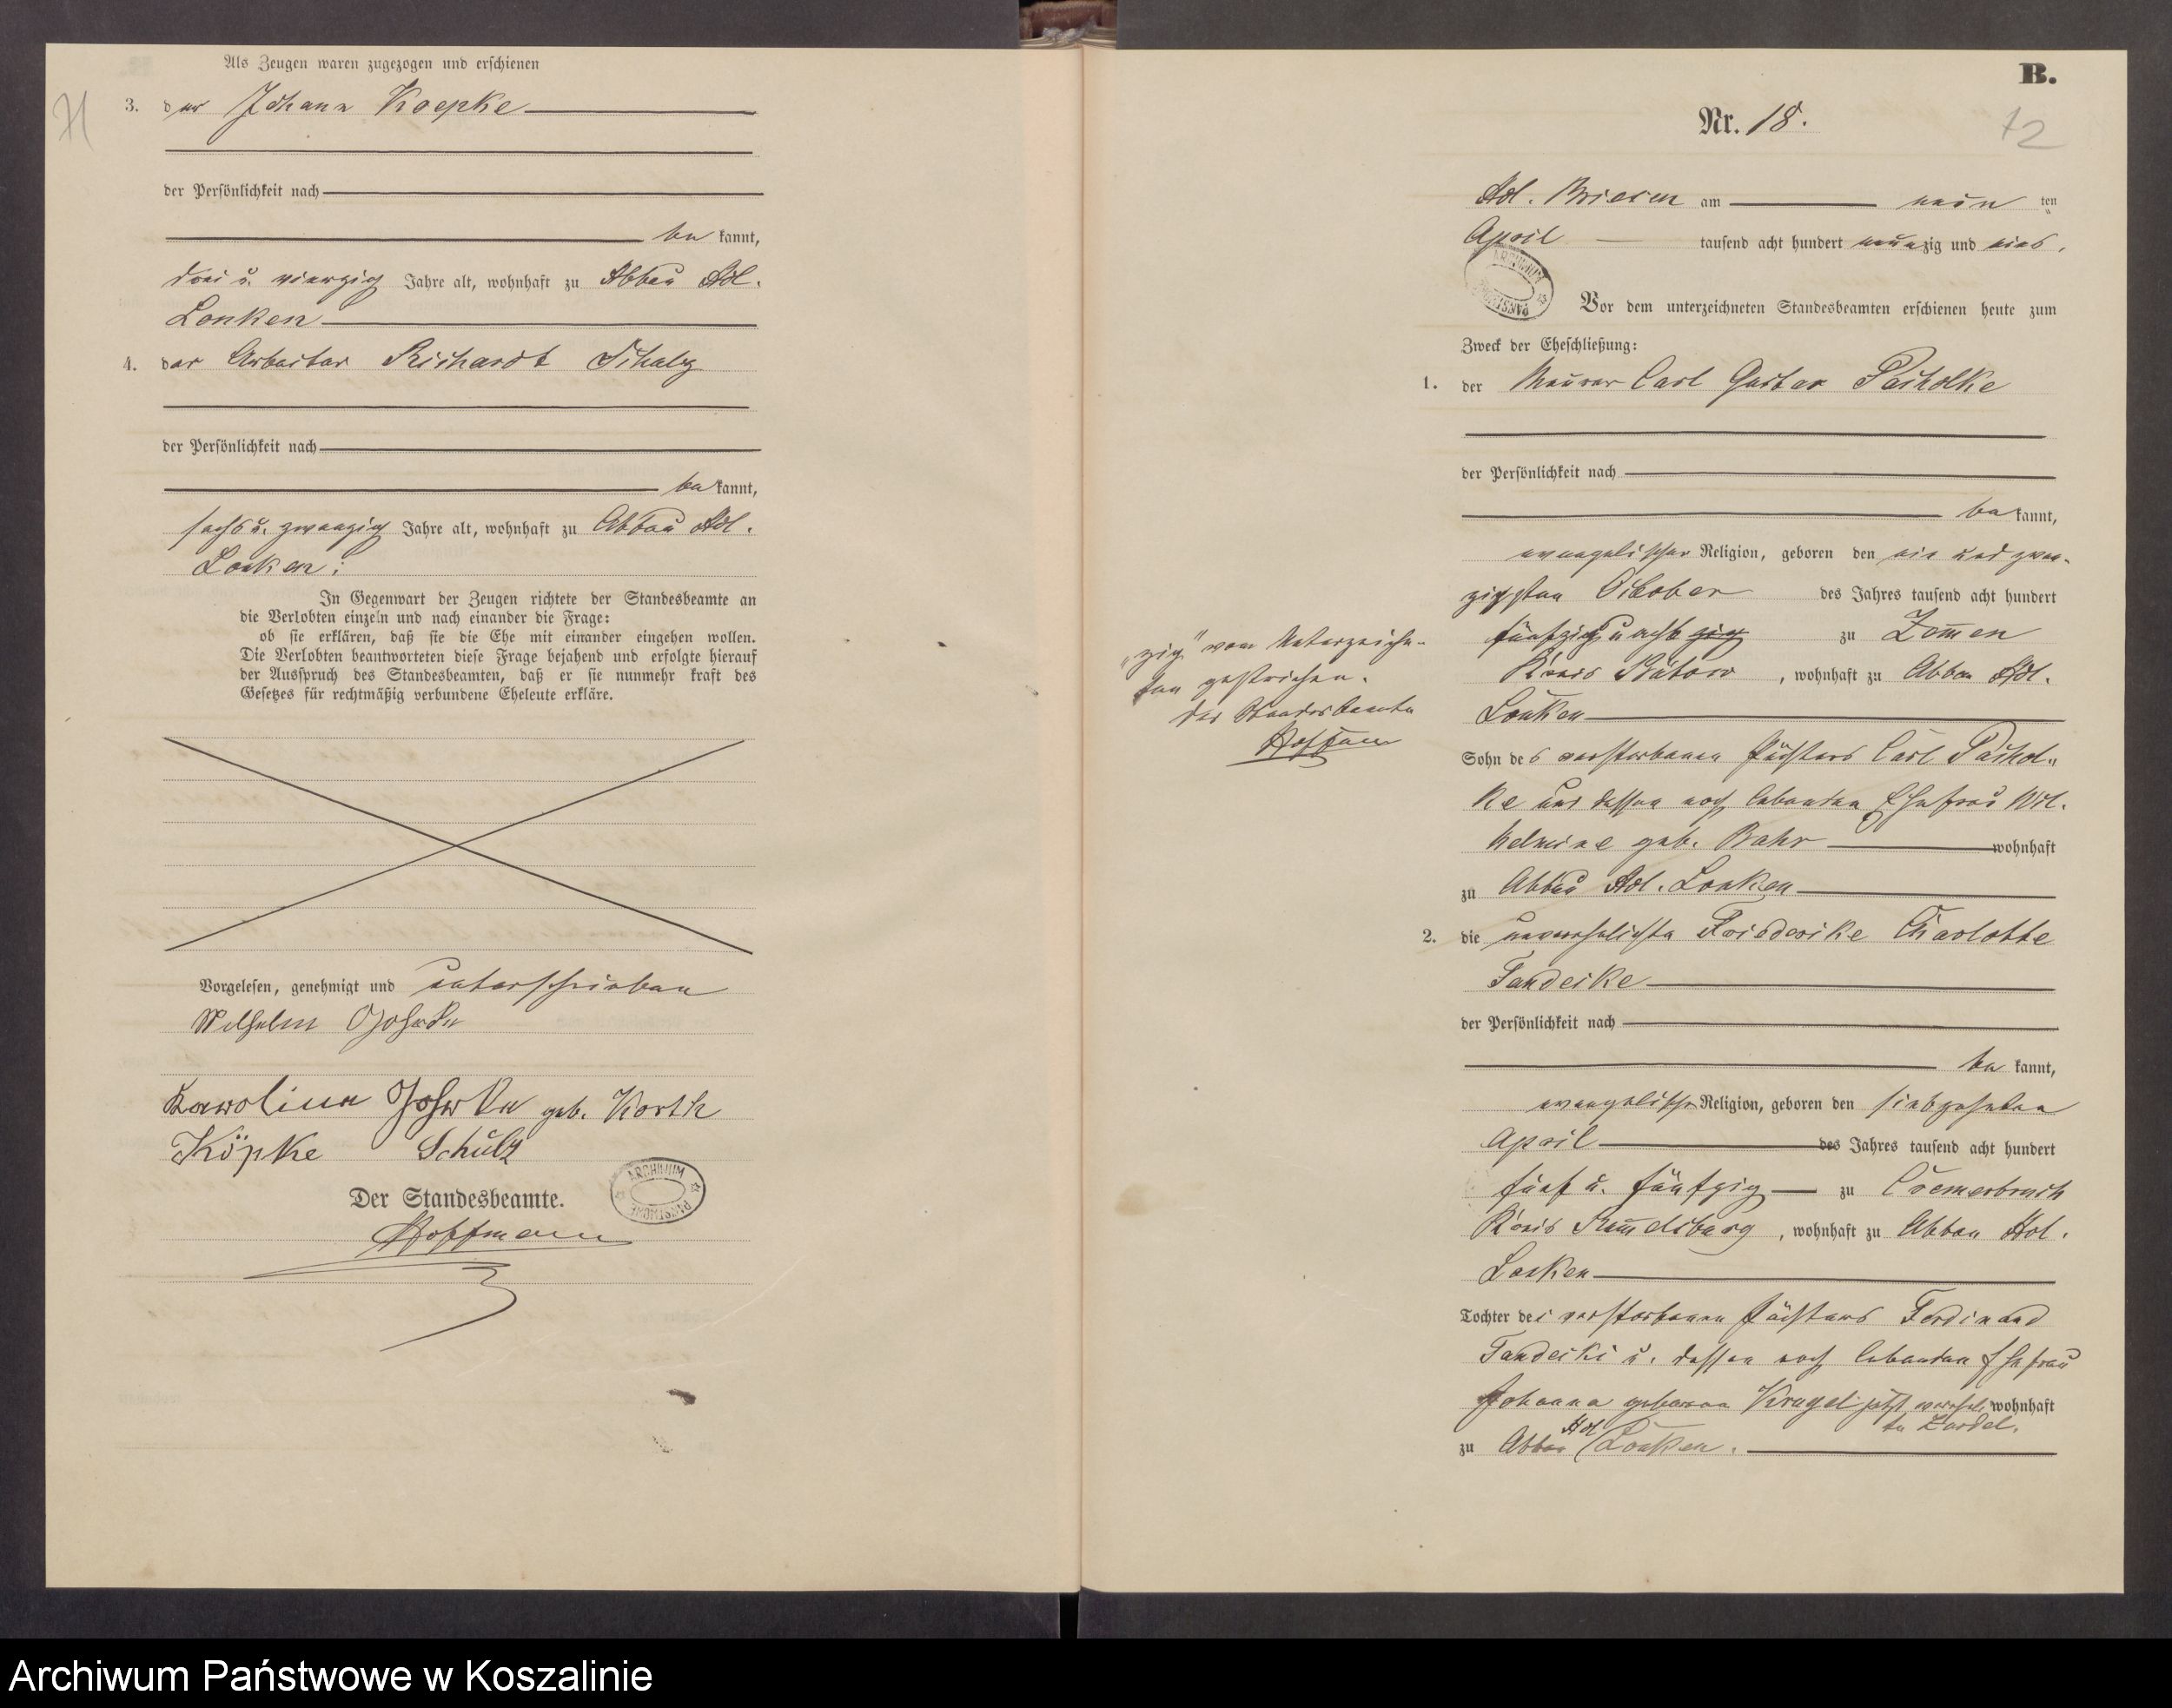 Als Zeugen waren zugezogen und erschienen
3. der Johann Koepke
der Persönlichkeit nach
be kannt,
drei u. vierzig Jahre alt, wohnhaft zu Abbau Adl.
Lonken
4. der Arbeiter Richardt Schulz
der Persönlichkeit nach
be kannt,
sechs u. zwanzig Jahre alt, wohnhaft zu Abbau Adl.
Lonken.
In Gegenwart der Zeugen richtete der Standesbeamte an
die Verlobten einzeln und nach einander die Frage:
ob sie erklären, daß sie die Ehe mit einander eingehen wollen.
Die Verlobten beantworteten diese Frage bejahend und erfolgte hierauf
der Ausspruch des Standesbeamten, daß er sie nunmehr kraft des
Gesetzes für rechtmäßig verbundene Eheleute erkläre.
Vorgelesen, genehmigt und unterschrieben
Wilhelm
Karoline geb. Korth
Köpke Schulz
Der Standesbeamte.
Hoffmann
71
B.
Nr. 18.
72
Adl. Briesen am neun ten
April tausend acht hundert neunzig und eins.
Vor dem unterzeichneten Standesbeamten erschienen heute zum
Zweck der Eheschließung:
1. der Maurer Carl Gustav Pacholke
der Persönlichkeit nach
be kannt,
evangelischer Religion, geboren den ein und zwan-
zigsten October des Jahres tausend acht hundert
fünfzig u acht zig zu Zommen
Kreis Bütow, wohnhaft zu Abbau Adl.
Lonken
„zig" vom Unterzeichne-
ten gestrichen.
Der Standesbeamte
Hoffmann
Sohn des verstorbenen Pächters Carl Pachol-
ke und dessen noch lebenden Ehefrau Wil-
helmine geb. Bahr wohnhaft
zu Abbau Adl. Lonken
2. die unverehelichte Friederike Charlotte
Tandeike
der Persönlichkeit nach
be kannt,
evangelischer Religion, geboren den siebzehnten
April des Jahres tausend acht hundert
fünf u. fünfzig zu Cremerbruch
Kreis Rummelsburg, wohnhaft zu Abbau Adl.
Lonken
Tochter des verstorbenen Pächters Ferdinand
Tandeiki u. dessen noch lebenden Ehefrau
Johanna geborene Krugel jetzt verehelich- wohnhaft
te
zu Abbau Adl Lonken.
ARCHIWUM PAŃSTWOWE
Archiwum Państwowe w Koszalinie